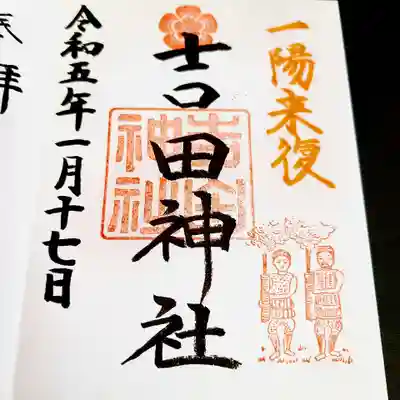 一陽来復
吉田神社
吉田
神社
令和五年一月十七日
拝